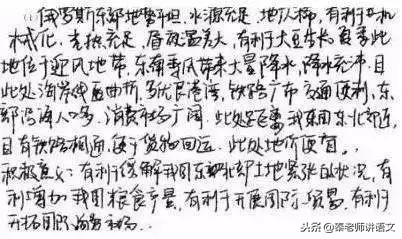 俄罗斯东部地势平坦，水源充足，地广人稀，有利于农机
械化，光热充足，昼夜温差大，有利于大豆生长，夏季此
地位于迎风地带，东南季风带来大量降水，降水充沛，且
此处海岸线曲折，多优良港湾，铁路广布，交通便利，东
部沿海人口多，消费市场广阔，此处距离我国东北部近，
且有铁路相通，便于货物回运，此处地价便宜。
积极意义：有利于缓解我国东北部土地紧张的状况，有
利增加我国粮食产量，有利于开展国际贸易，有利于
开拓国际海外市场..
头条@秦老师讲语文